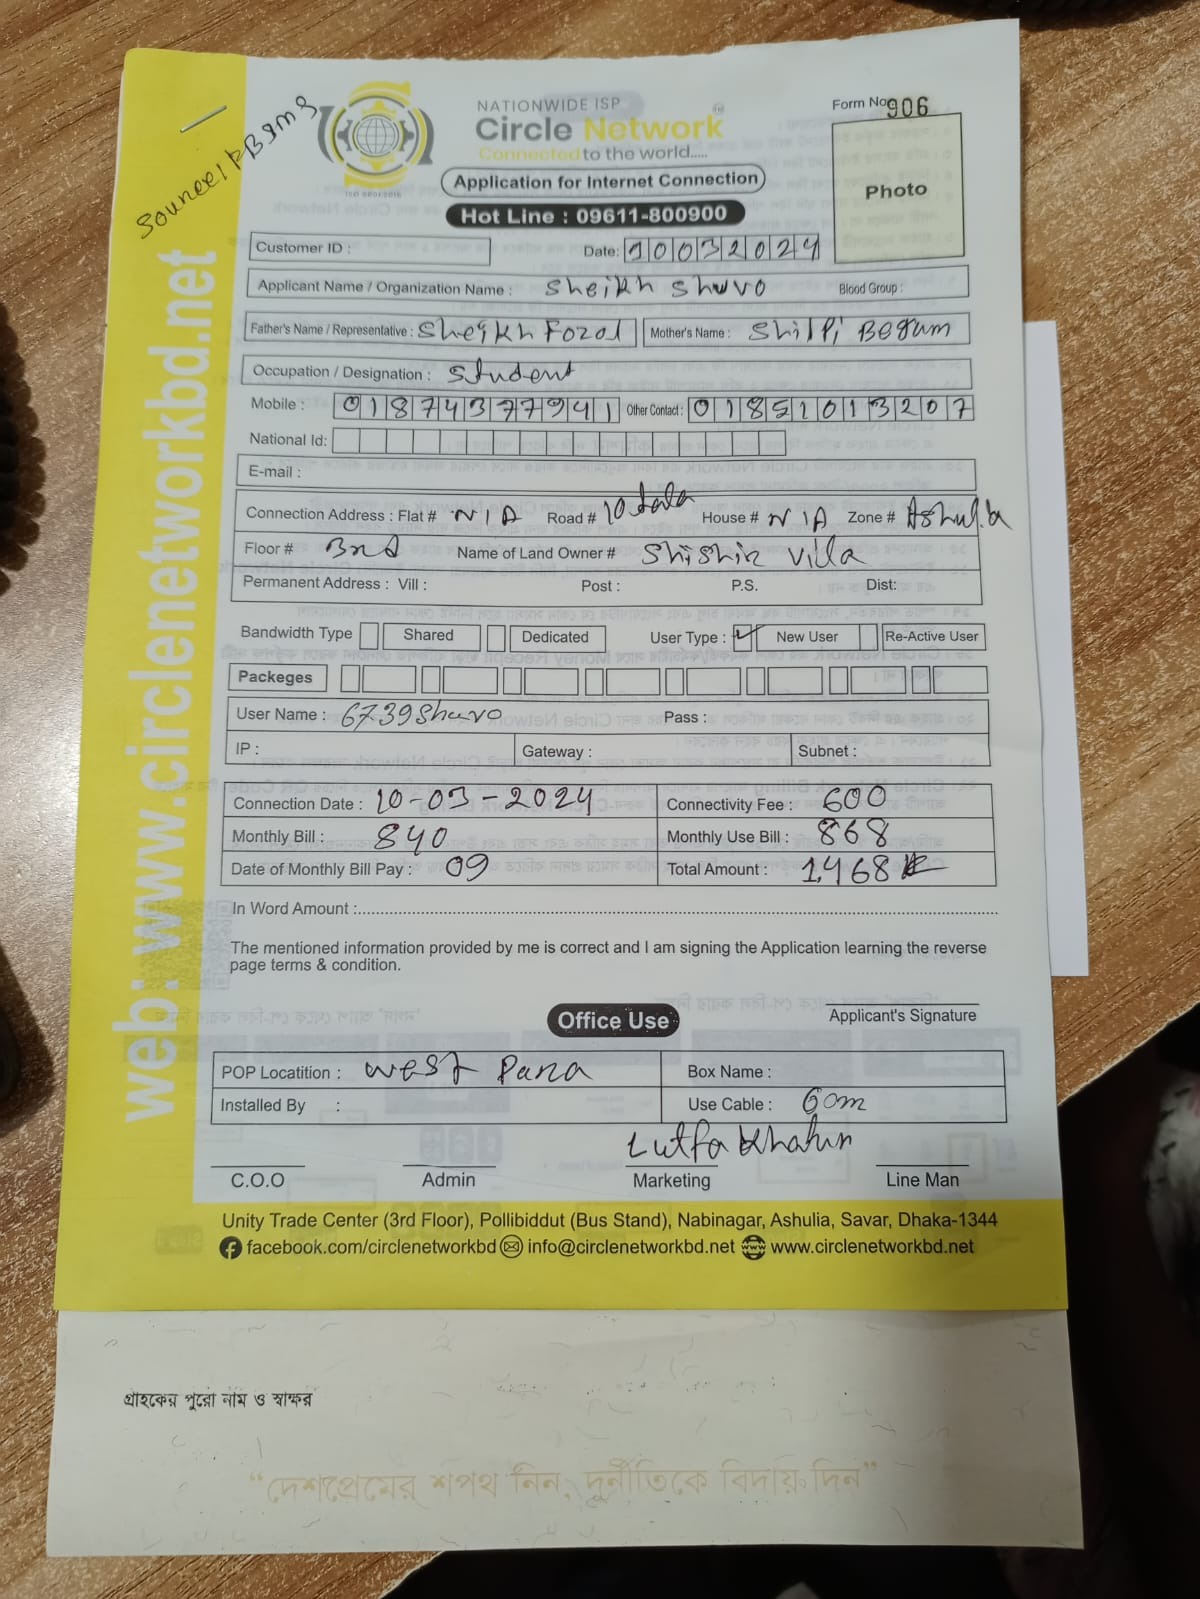 NATIONWIDE ISP
Circle Network
Connected to the world.....
Form No 906
Photo
Application for Internet Connection
Hot Line : 09611-800900
web: www.circlenetworkbd.net
Customer ID : Date: 10032024
Applicant Name / Organization Name : Sheikh Shuvo Blood Group :
Father's Name / Representative : Sheikh Fozal Mother's Name : Shilpi Begum
Occupation / Designation : Student
Mobile : 01874377941 Other Contact : 01851013207
National Id:
E-mail :
Connection Address : Flat # N/A Road # 10 tala House # N/A Zone # Ashulia
Floor # 3rd Name of Land Owner # Shishir villa
Permanent Address : Vill : Post : P.S. Dist:
Bandwidth Type Shared Dedicated User Type : ✓ New User Re-Active User
Packeges
User Name : 6739Shuvo Pass :
IP : Gateway : Subnet :
Connection Date : 10-03-2024 Connectivity Fee : 600
Monthly Bill : 840 Monthly Use Bill : 868
Date of Monthly Bill Pay : 09 Total Amount : 1468
In Word Amount :
The mentioned information provided by me is correct and I am signing the Application learning the reverse
page terms & condition.
Applicant's Signature
Office Use
POP Locatition : West Para Box Name :
Installed By : Use Cable : 60m
Lutfa Khatun
C.O.O Admin Marketing Line Man
Unity Trade Center (3rd Floor), Pollibiddut (Bus Stand), Nabinagar, Ashulia, Savar, Dhaka-1344
facebook.com/circlenetworkbd info@circlenetworkbd.net www.circlenetworkbd.net
গ্রাহকের পুরো নাম ও স্বাক্ষর
“দেশপ্রেমের শপথ নিন, দুর্নীতিকে বিদায় দিন”